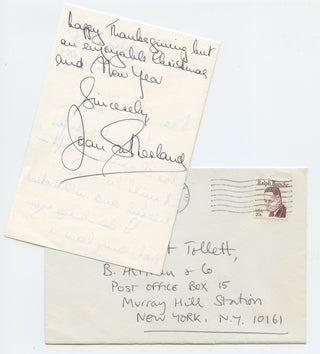 happy Thanksgiving but
an enjoyable Christmas
and New Year
Sincerely,
Joan
Ralph Bunche
USA
20c
t Tollett,
B. Altman & Co
Post Office Box 15
Murray Hill Station
New York, N.Y. 10161